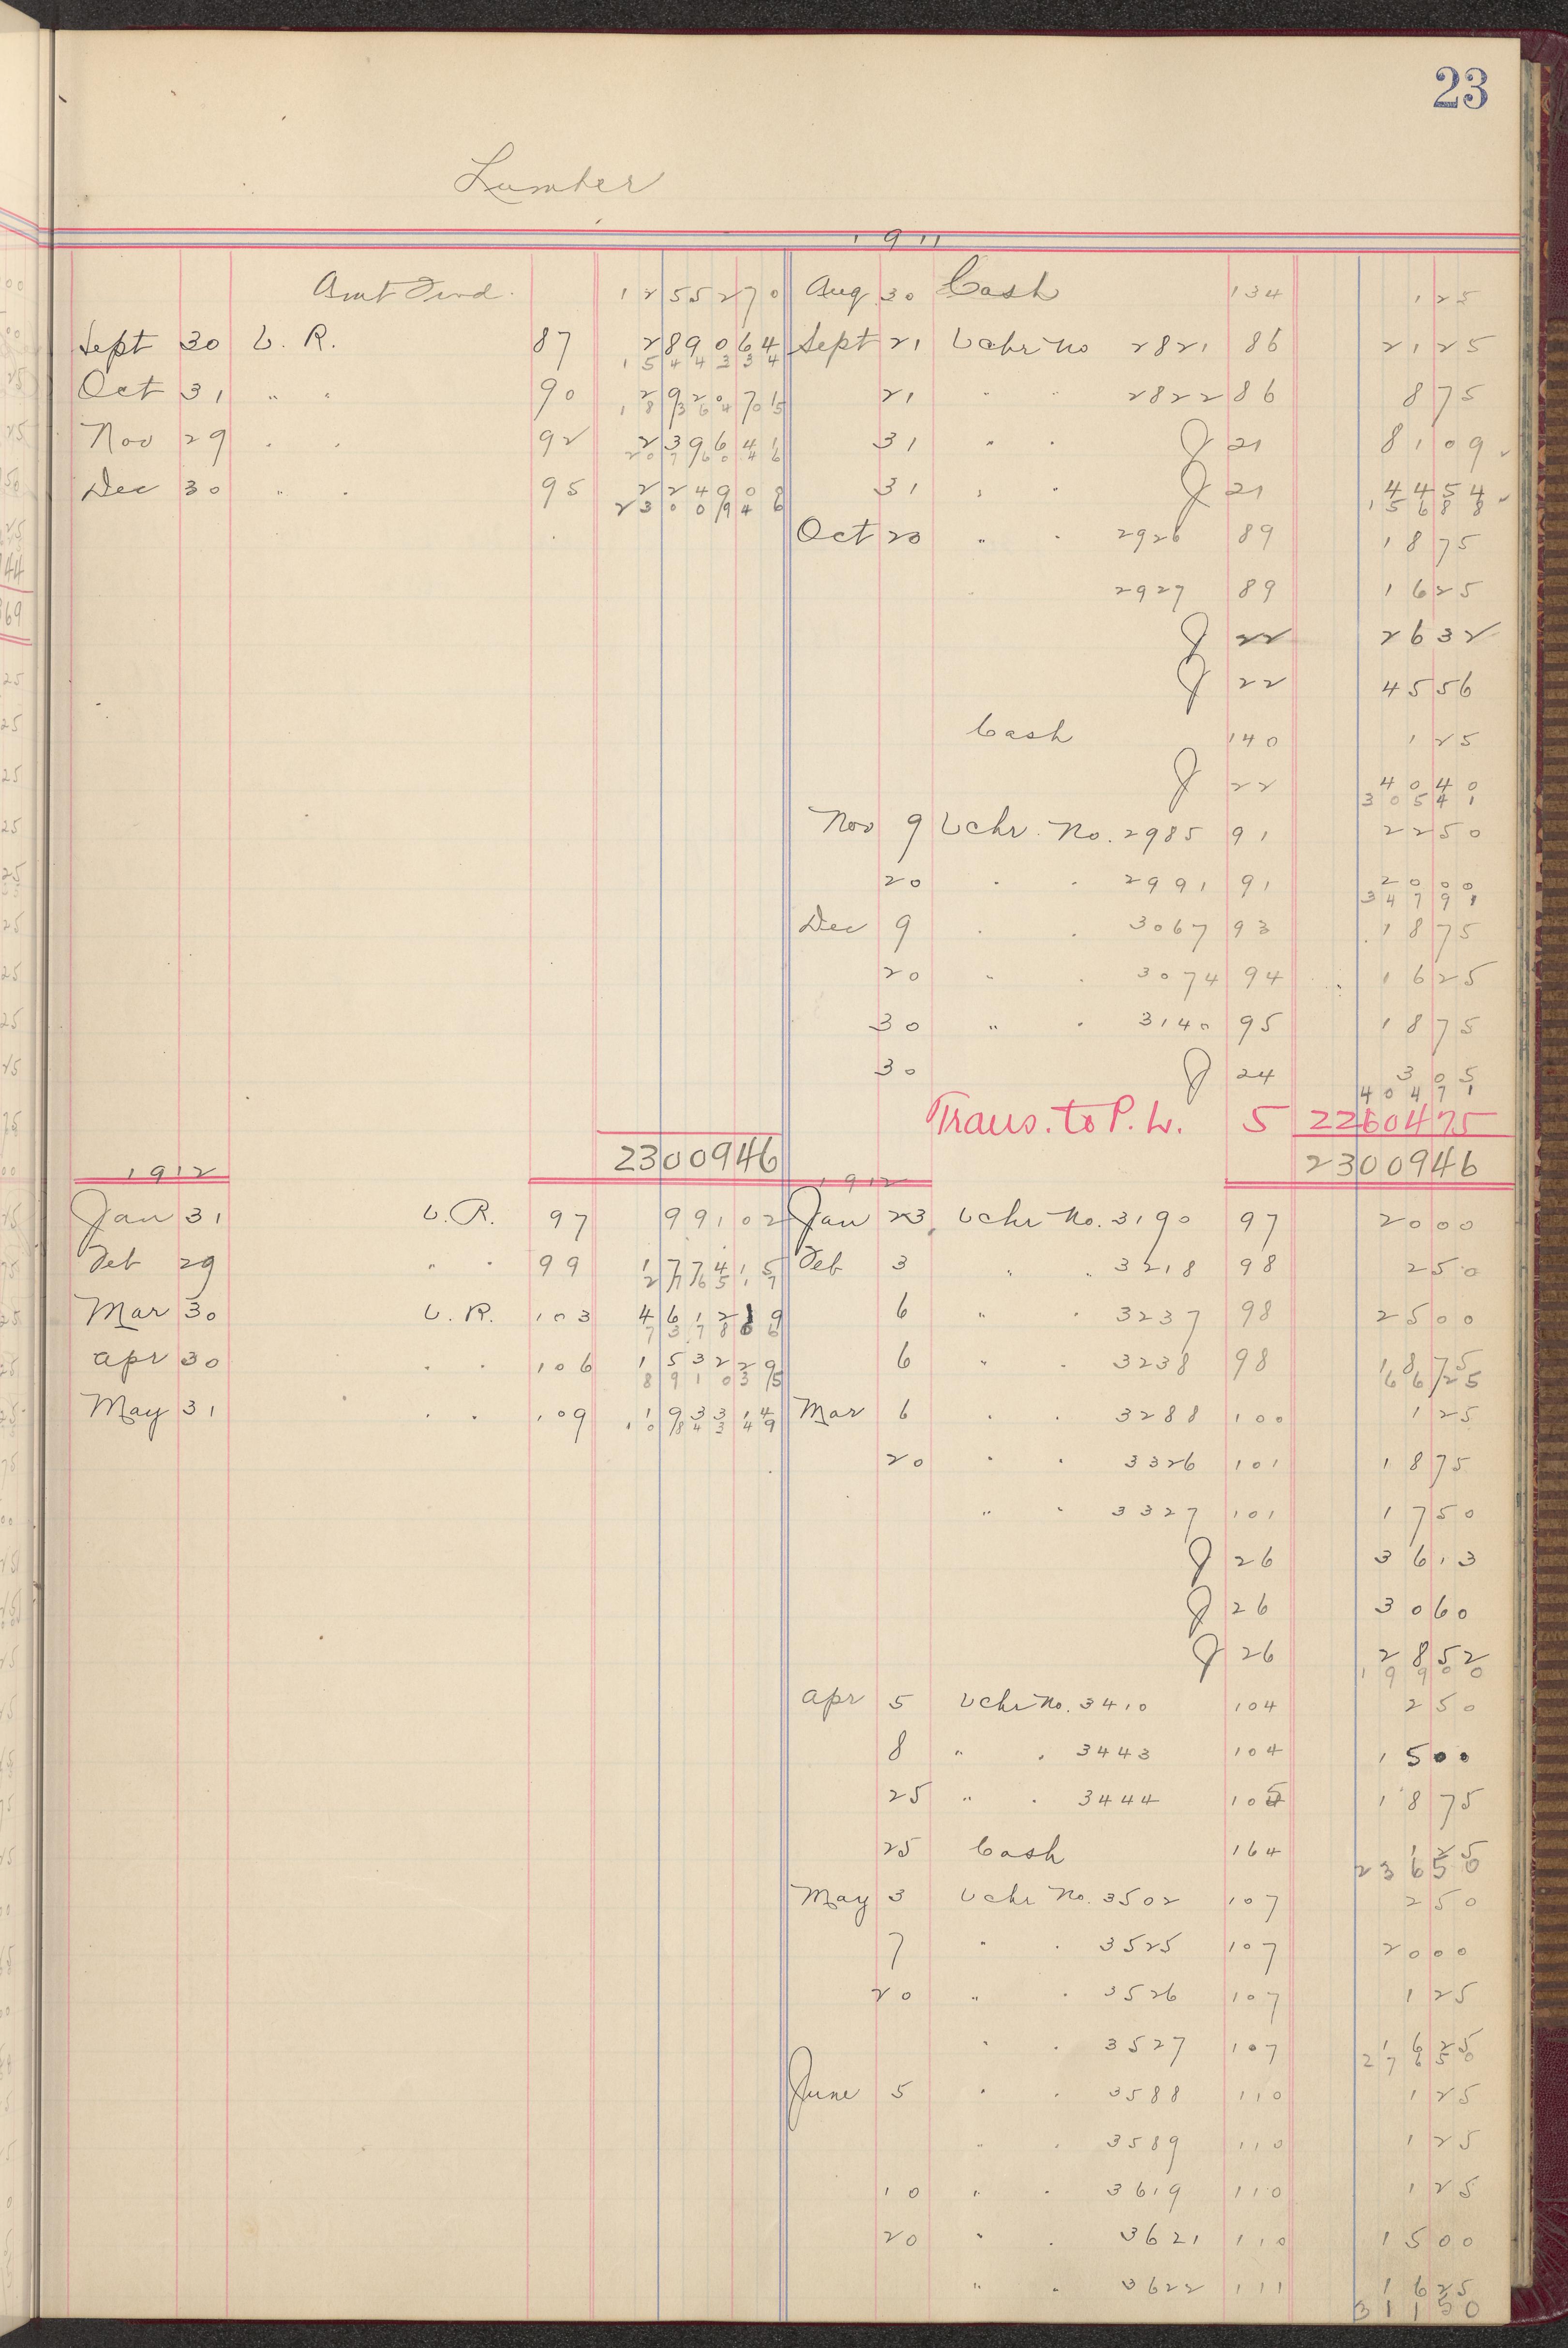 23
Lumber
Amt Fwd. 1255270
Sept 30 V. R. 87 289064
1544334
Oct 31 " " 90 292071
1836405
Nov 29 " " 92 239641
2076046
Dec 30 " " 95 224900
2300946
2300946
1911
Aug 30 Cash 134 125
Sept 21 Vchr No 2821 86 2125
21 " " 2822 86 875
31 " " J 21 8109 ✓
31 " " J 21 4454 ✓
15688
Oct 20 " " 2926 89 1875
" 2927 89 1625
J 22 2632
J 22 4556
Cash 140 125
J 22 4040
30541
Nov 9 Vchr. No. 2985 91 2250
20 " " 2991 91 2000
34791
Dec 9 " " 3067 93 1875
20 " " 3074 94 1625
30 " " 3140 95 1875
30 J 24 305
40471
Trans. to P. L. 5 2260475
2300946
1912
Jan 31 V. R. 97 99102
Feb 29 " " 99 177415
276517
Mar 30 V. R. 103 461289
737806
Apr 30 " " 106 153229
891035
May 31 " " 109 193314
1084349
1912
Jan 23 Vchr No. 3190 97 2000
Feb 3 " " 3218 98 250
6 " " 3237 98 2500
6 " " 3238 98 1875
6625
Mar 6 " " 3288 100 125
20 " " 3326 101 1875
" " 3327 101 1750
J 26 3613
J 26 3060
J 26 2852
19900
Apr 5 Vchr No. 3410 104 250
8 " " 3443 104 1500
25 " " 3444 105 1875
25 Cash 164 125
23650
May 3 Vchr No. 3502 107 250
7 " " 3525 107 2000
20 " " 3526 107 125
" " 3527 107 1625
27650
June 5 " " 3588 110 125
" " 3589 110 125
10 " " 3619 110 125
20 " " 3621 110 1500
" " 3622 111 1625
31150